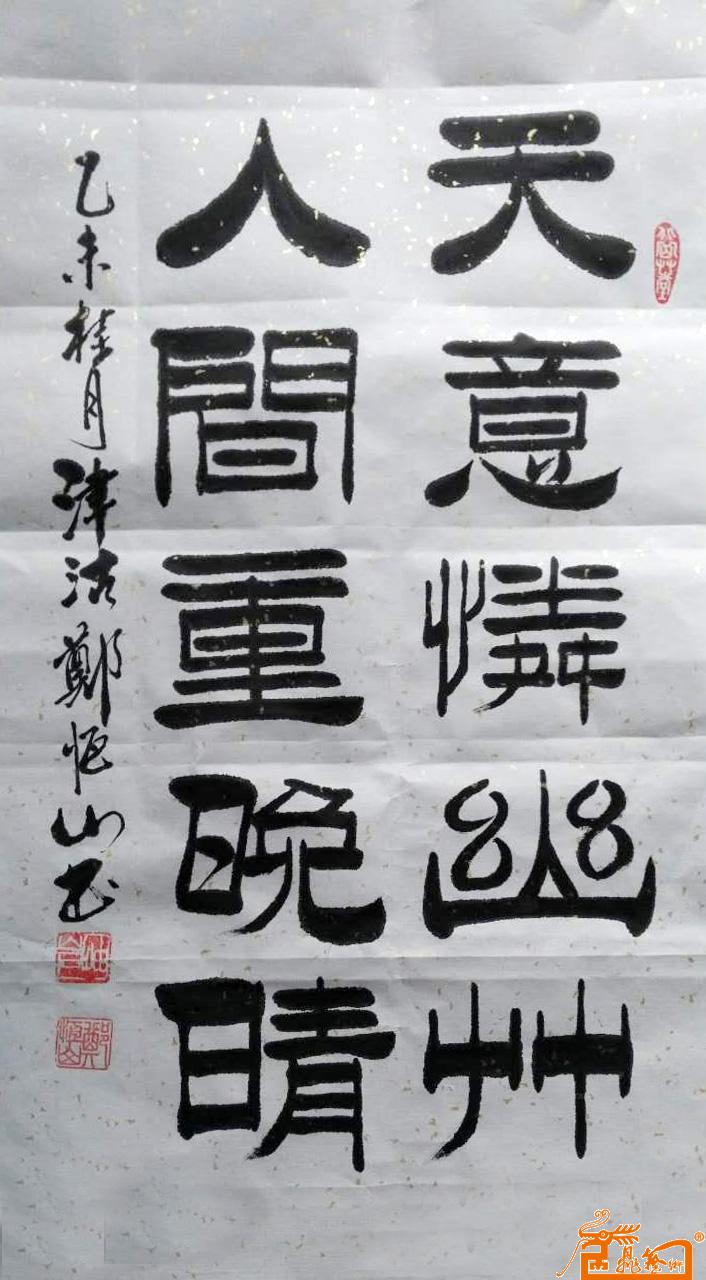 天意憐幽艸
人間重晚晴
乙未桂月津沽鄭恒山書